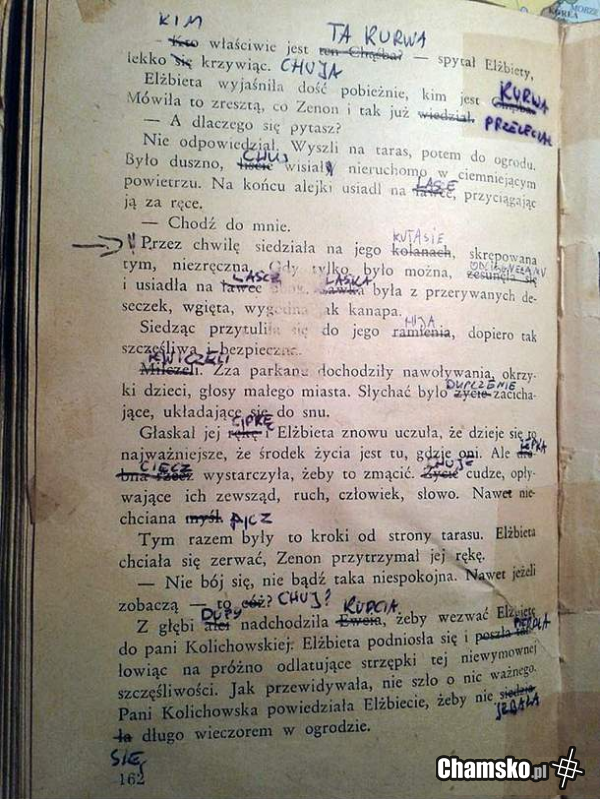 KOREA
MORZE
KIM
TA KURWA
— Kto właściwie jest ten Chąśba? — spytał Elżbiety,
lekko się krzywiąc. CHUJA
Elżbieta wyjaśniła dość pobieżnie, kim jest Chąśba.
KURWA
Mówiła to zresztą, co Zenon i tak już wiedział.
PRZELECIAŁ
— A dlaczego się pytasz?
Nie odpowiedział. Wyszli na taras, potem do ogrodu.
CHUJ
Było duszno, liście wisiały nieruchomo w ciemniejącym
LASĘ
powietrzu. Na końcu alejki usiadł na ławce, przyciągając
ją za ręce.
— Chodź do mnie.
KUTASIE
!! Przez chwilę siedziała na jego kolanach, skrępowana
tym, niezręczna. Gdy tylko było można, zesunęła się
LASCE LASKA
i usiadła na ławce obok. Ławka była z przerywanych de-
seczek, wgięta, wygodna jak kanapa.
Siedząc przytuliła się do jego ramienia, dopiero tak
szczęśliwa i bezpieczna.
KWICZELI
Milczeli. Zza parkanu dochodziły nawoływania, okrzy-
ki dzieci, głosy małego miasta. Słychać było życie zacicha-
DUPCZENIE
jące, układające się do snu.
CIPKĘ
Głaskał jej rękę i Elżbieta znowu uczuła, że dzieje się to
najważniejsze, że środek życia jest tu, gdzie oni. Ale dro-
LEPKA
CIECZ CHUJE
bna rzecz wystarczyła, żeby to zmącić. Życie cudze, opły-
wające ich zewsząd, ruch, człowiek, słowo. Nawet nie-
chciana myśl. PICZ
Tym razem były to kroki od strony tarasu. Elżbieta
chciała się zerwać, Zenon przytrzymał jej rękę.
— Nie bój się, nie bądź taka niespokojna. Nawet jeżeli
zobaczą — to cóż? CHUJ?
DUPY KUPCIA
Z głębi alei nadchodziła Ewcia, żeby wezwać Elżbietę
do pani Kolichowskiej. Elżbieta podniosła się i poszła
łowiąc na próżno odlatujące strzępki tej niewymownej
szczęśliwości. Jak przewidywała, nie szło o nic ważnego.
Pani Kolichowska powiedziała Elżbiecie, żeby nie siedzia-
JEBAŁA
ła długo wieczorem w ogrodzie.
SIĘ
162
Chamsko.pl